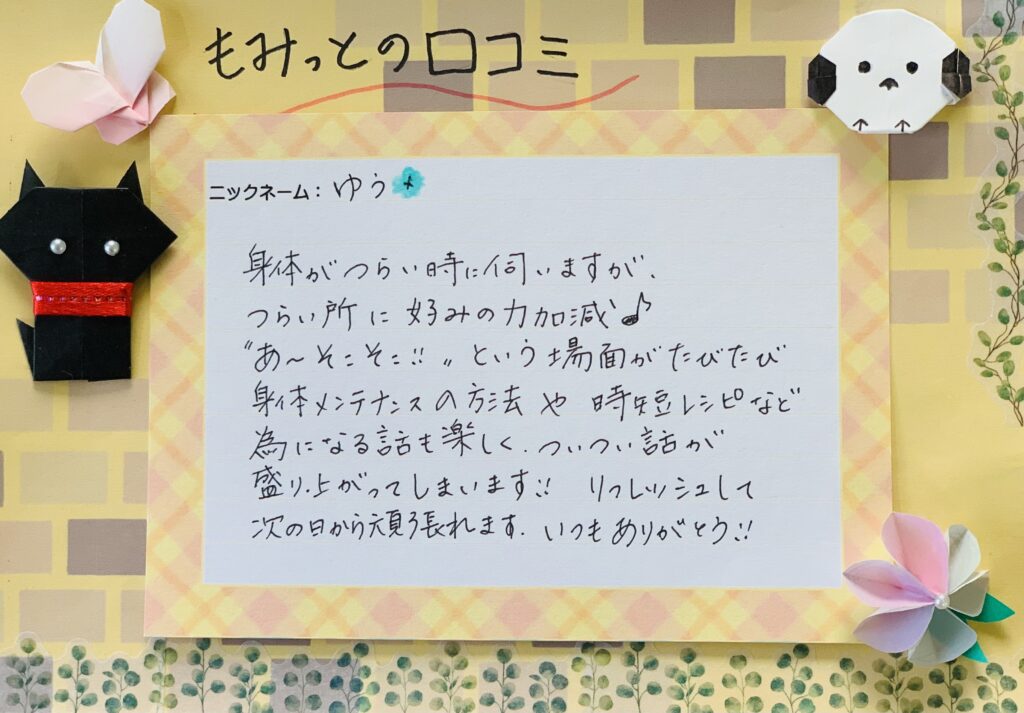 もみっとの口コミ
ニックネーム： ゆう
身体がつらい時に伺いますが、
つらい所に好みの力加減♪
〝あ〜そこそこ!!〟という場面がたびたび
身体メンテナンスの方法や時短レシピなど
為になる話も楽しく、ついつい話が
盛り上がってしまいます!! リフレッシュして
次の日から頑張れます。いつもありがとう!!